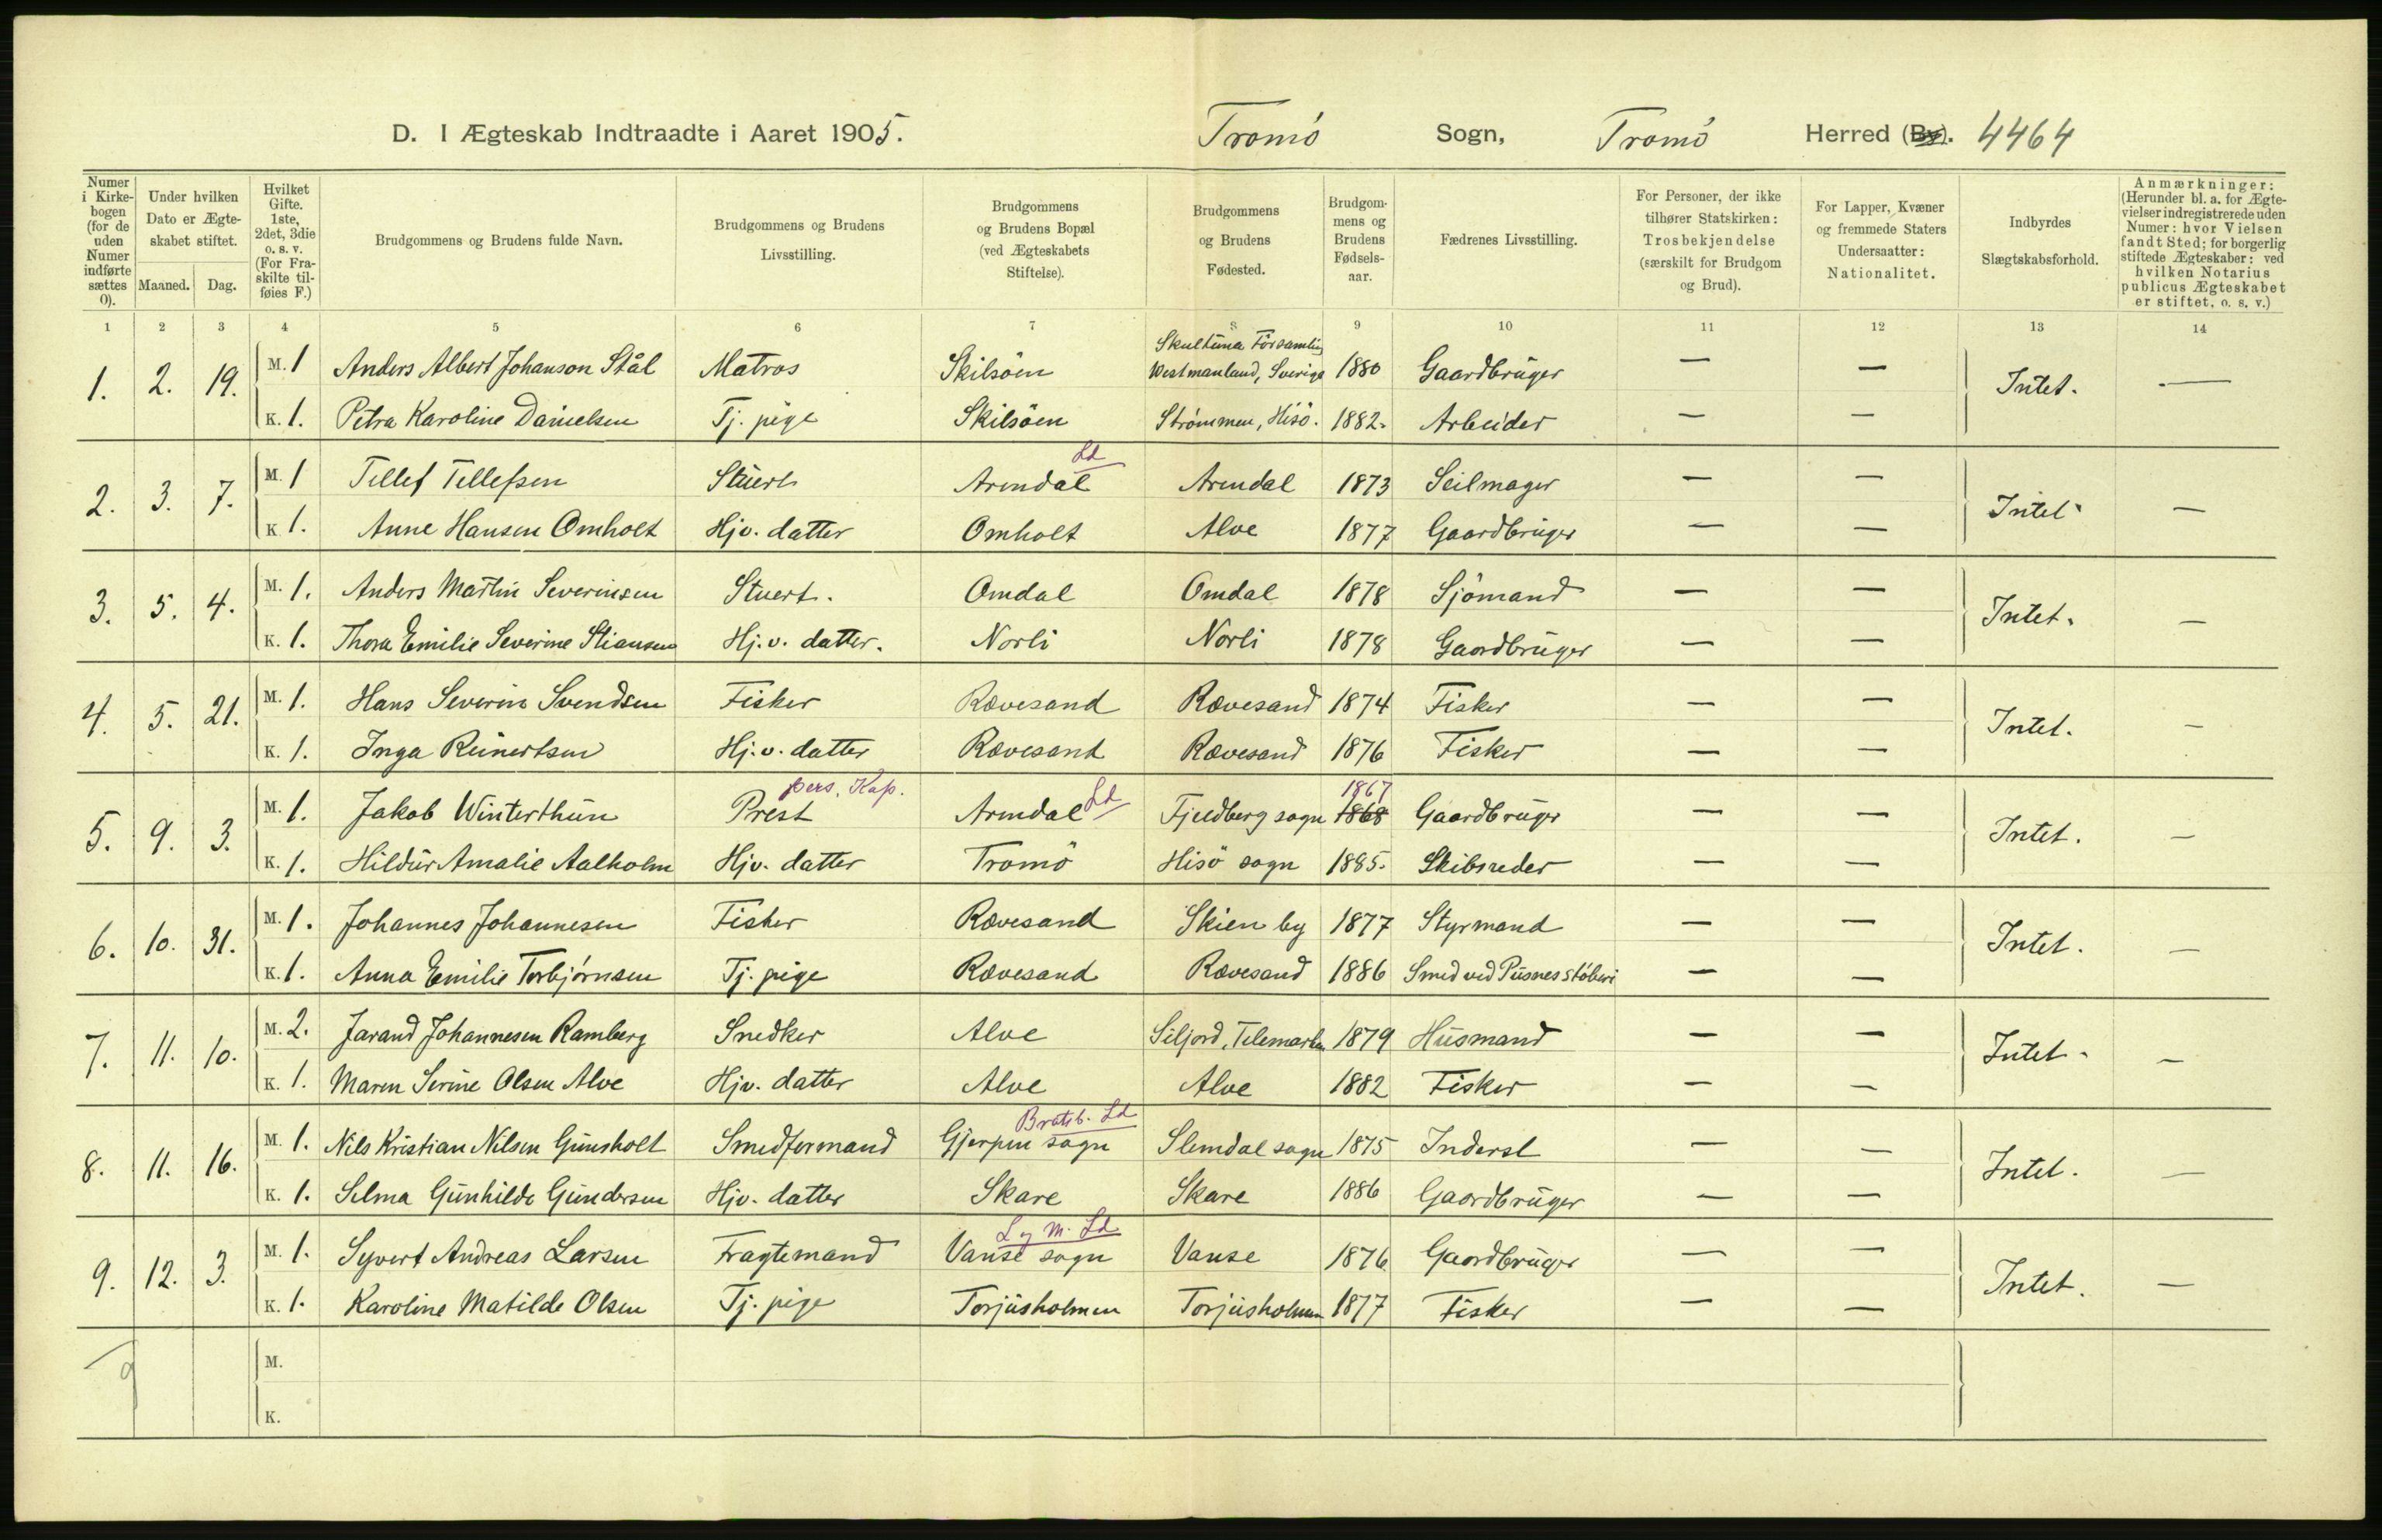 D. I Ægteskab Indtraadte i Aaret 1905. Tromö Sogn, Tromö Herred (By). 4464
Numer i Kirkebogen (for de uden Numer indførte sættes 0).
Under hvilken Dato er Ægteskabet stiftet.
Maaned. Dag.
Hvilket Gifte. 1ste, 2det, 3die o. s. v. (For Fraskilte tilføies F.)
Brudgommens og Brudens fulde Navn.
Brudgommens og Brudens Livsstilling.
Brudgommens og Brudens Bopæl (ved Ægteskabets Stiftelse).
Brudgommens og Brudens Fødested.
Brudgommens og Brudens Fødselsaar.
Fædrenes Livsstilling.
For Personer, der ikke tilhører Statskirken: Trosbekjendelse (særskilt for Brudgom og Brud).
For Lapper, Kvæner og fremmede Staters Undersaatter: Nationalitet.
Indbyrdes Slægtskabsforhold.
Anmærkninger: (Herunder bl. a. for Ægtevielser indregistrerede uden Numer: hvor Vielsen fandt Sted; for borgerlig stiftede Ægteskaber: ved hvilken Notarius publicus Ægteskabet er stiftet, o. s. v.)
1 2 3 4 5 6 7 8 9 10 11 12 13 14
1. 2. 19. M. 1 Anders Albert Johanson Stål Matros Skilsöen Skultuna Församling Westmanland, Sverige 1880 Gaardbruger — — Intet. —
K. 1. Petra Karoline Danielsen Tj. pige Skilsöen Strømmen, Hisö. 1882. Arbeider — —
2. 3. 7. M. 1 Tellef Tellefsen Stuert Arendal Ld Arendal 1873 Seilmager — — Intet. —
K. 1. Anne Hansen Omholt Hjv. datter Omholt Alve 1877 Gaardbruger — —
3. 5. 4. M. 1. Anders Martin Severinsen Stuert. Omdal Omdal 1878 Sjömand — — Intet. —
K. 1. Thora Emilie Severine Stiansen Hj. v. datter. Norli Norli 1878 Gaardbruger — —
4. 5. 21. M. 1. Hans Severin Svendsen Fisker Rævesand Rævesand 1874 Fisker — — Intet. —
K. 1. Inga Reinertsen Hj. v. datter Rævesand Rævesand 1876 Fisker — —
5. 9. 3. M. 1. Jakob Winterthun Prest pers. Kap. Arendal Ld Fjeldberg sogn 1868 1867 Gaardbruger — — Intet. —
K. 1. Hildur Amalie Aalholm Hjv. datter Tromö Hisö sogn 1885. Skibsreder — —
6. 10. 31. M. 1. Johannes Johannesen Fisker Rævesand Skien by 1877 Styrmand — — Intet. —
K. 1. Anna Emilie Torbjørnsen Tj. pige Rævesand Rævesand 1886 Smed ved Pusnes støberi — —
7. 11. 10. M. 2. Jarand Johannesen Ramberg Snedker Alve Siljord, Telemarken 1879 Husmand — — Intet. —
K. 1. Maren Serine Olsen Alve Hjv. datter Alve Alve 1882 Fisker — —
8. 11. 16. M. 1. Nils Kristian Nilsen Gunsholt Smedformand Gjerpen sogn Bratsb. Ld Slemdal sogn 1875 Inderst — — Intet. —
K. 1. Selma Gunhilde Gundersen Hjv. datter Skare Skare 1886 Gaardbruger — —
9. 12. 3. M. 1. Syvert Andreas Larsen Fragtemand Vanse sogn L. og M. Ld Vanse 1876 Gaardbruger — — Intet. —
K. 1. Karoline Matilde Olsen Tj. pige Torjusholmen Torjusholmen 1877 Fisker — —
9 M.
K.